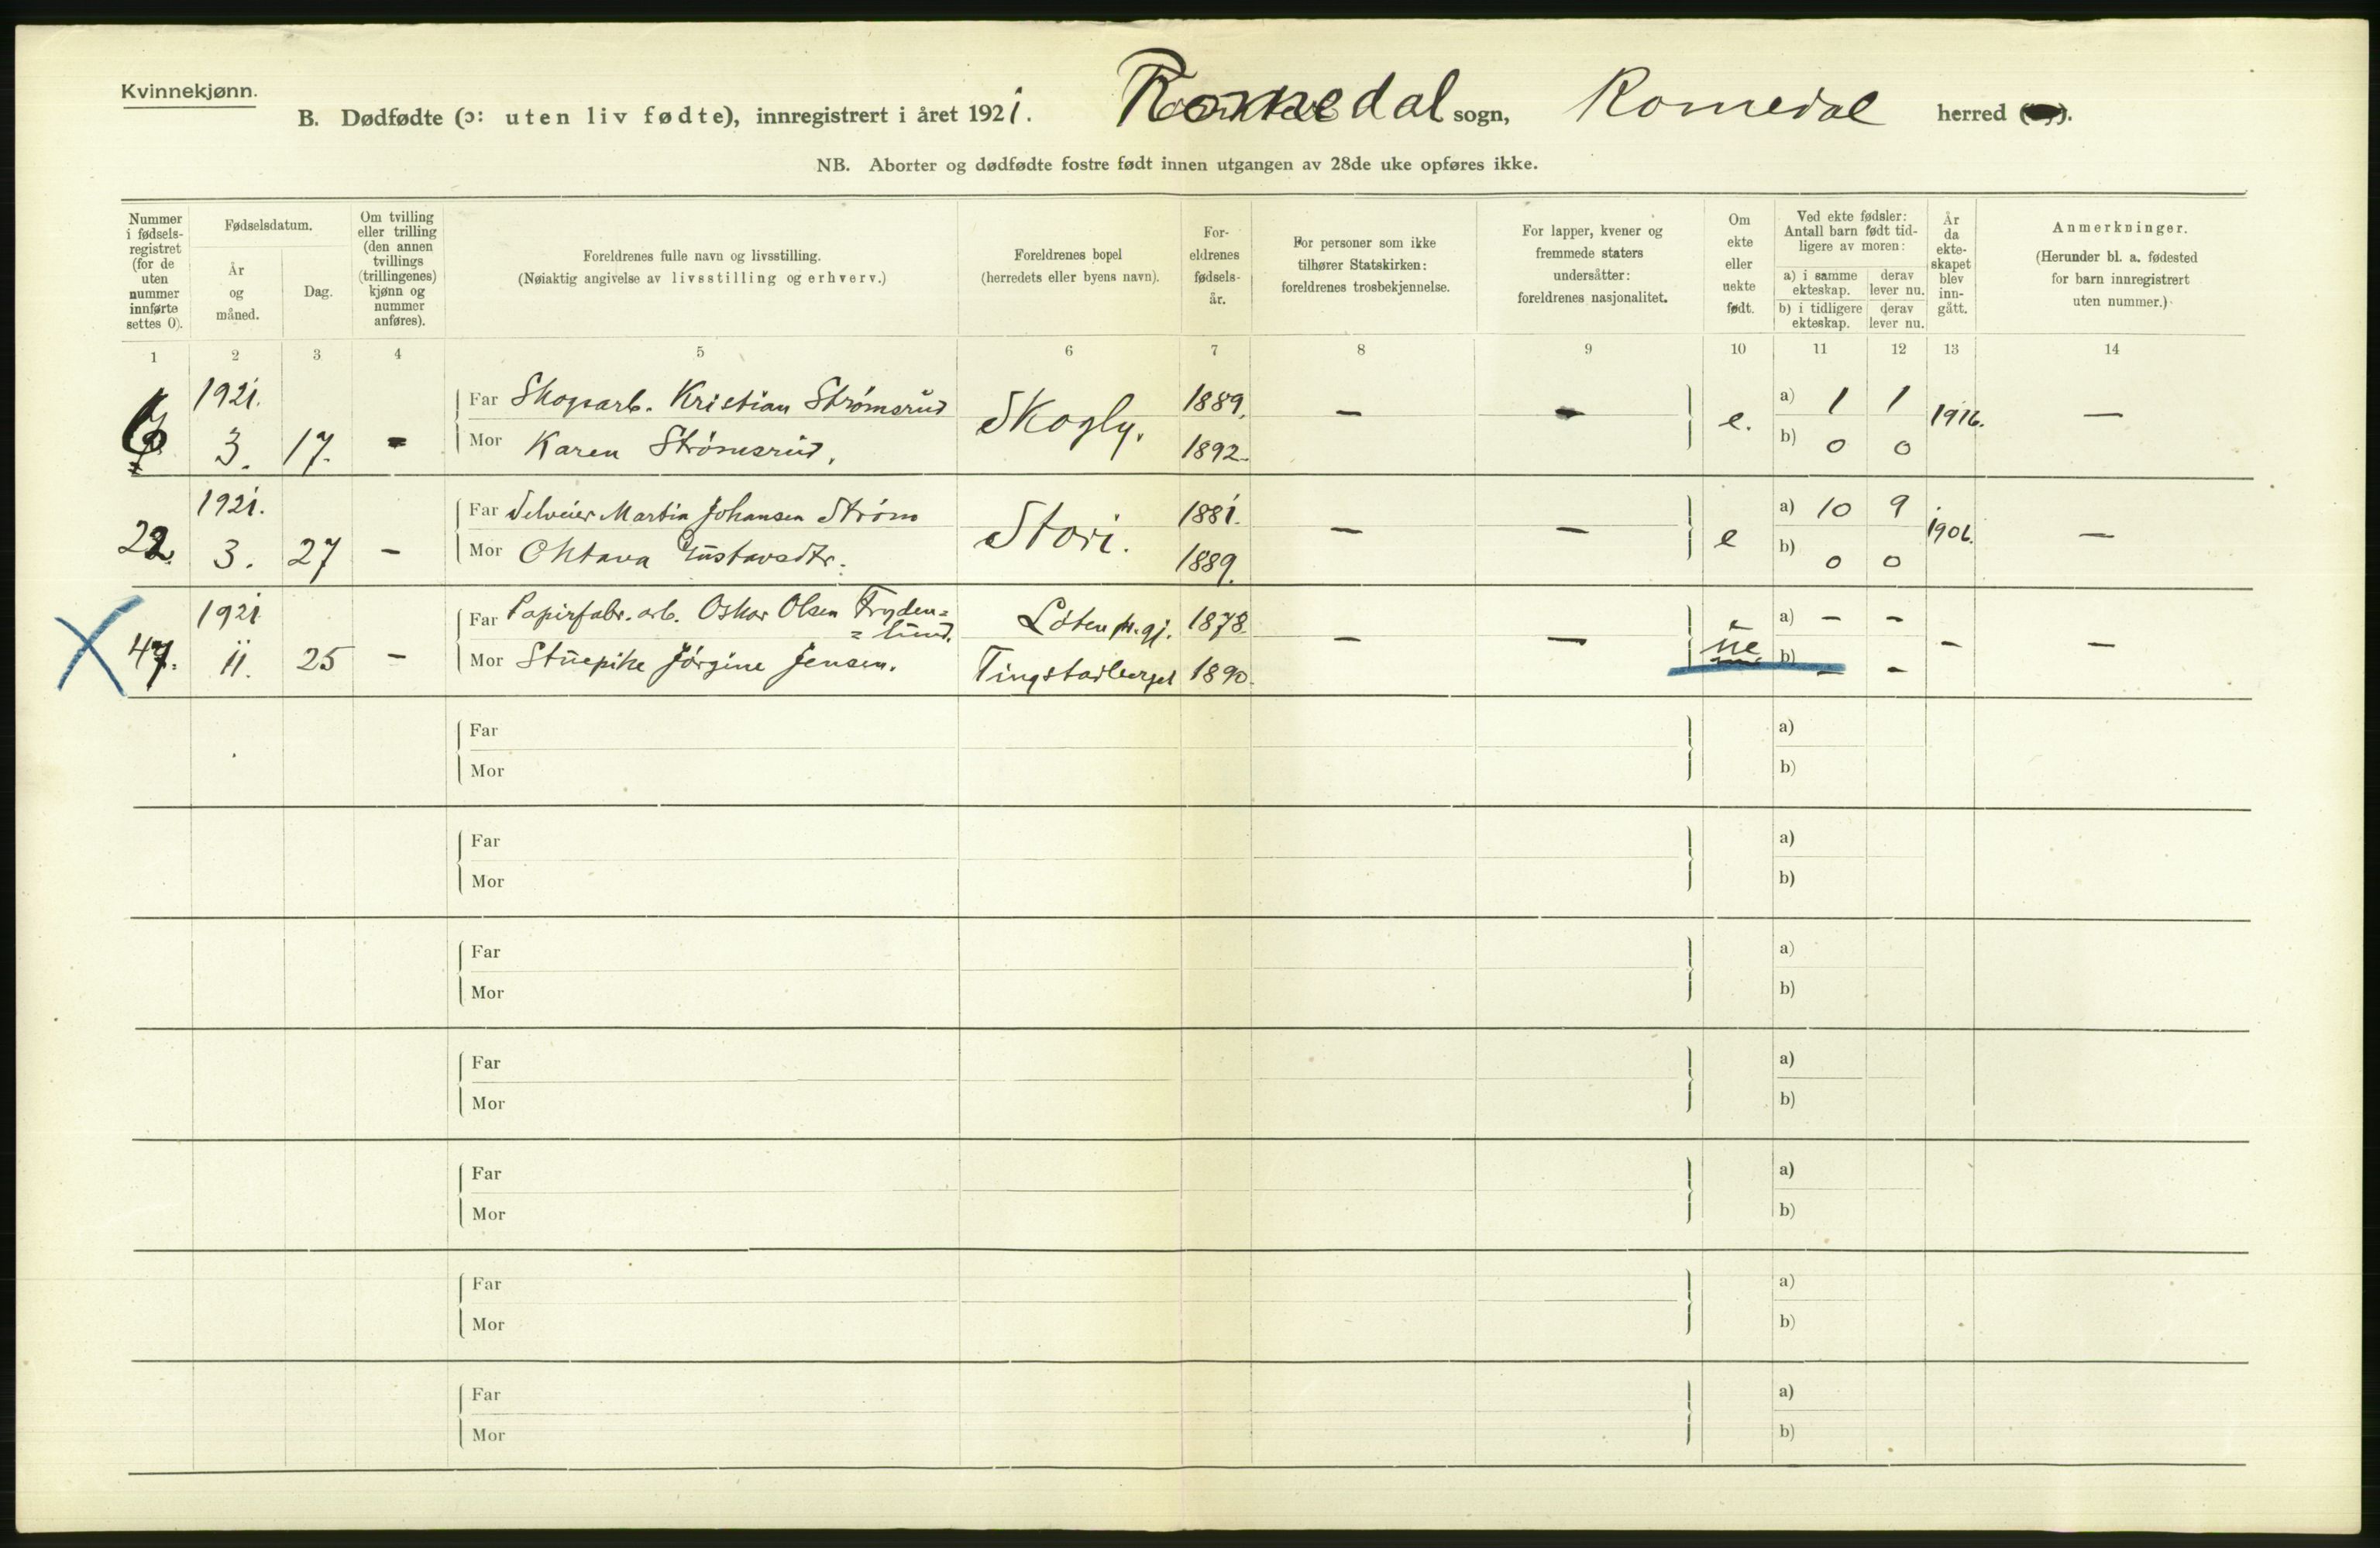 Kvinnekjønn.
B. Dødfødte (ɔ: uten liv fødte), innregistrert i året 1921. Romedal sogn, Romedal herred ( ).
NB. Aborter og dødfødte fostre født innen utgangen av 28de uke opføres ikke.
Nummer i fødsels-registret (for de uten nummer innførte settes 0).
Fødselsdatum.
År og måned.
Dag.
Om tvilling eller trilling (den annen tvillings (trillingenes) kjønn og nummer anføres).
Foreldrenes fulle navn og livsstilling.
(Nøiaktig angivelse av livsstilling og erhverv.)
Foreldrenes bopel
(herredets eller byens navn).
For-eldrenes fødsels-år.
For personer som ikke tilhører Statskirken: foreldrenes trosbekjennelse.
For lapper, kvener og fremmede staters undersåtter: foreldrenes nasjonalitet.
Om ekte eller uekte født.
Ved ekte fødsler:
Antall barn født tid-ligere av moren:
a) i samme ekteskap.
derav lever nu.
b) i tidligere ekteskap.
derav lever nu.
År da ekte-skapet blev inn-gått.
Anmerkninger.
(Herunder bl. a. fødested for barn innregistrert uten nummer.)
1 2 3 4 5 6 7 8 9 10 11 12 13 14
1921. Far Skogsarb. Kristian Strømsrud Skogly. 1889. – – e. a) 1 1 1916. –
3. 17. – Mor Karen Strømsrud. 1892. b) 0 0
1921. Far Selveier Martin Johansen Strøm Stori. 1881. – – e a) 10 9 1906. –
22. 3. 27 – Mor Oktava Gustavsdtr. 1889. b) 0 0
1921 Far Papirfabr. arb. Oskar Olsen Fryden=
=lund. Løten pr.gj. 1878. – – ue a) – – – –
47. 11. 25 – Mor Stuepike Jørgine Jensen. Tingstadberget 1890. b) – –
Far a)
Mor b)
Far a)
Mor b)
Far a)
Mor b)
Far a)
Mor b)
Far a)
Mor b)
Far a)
Mor b)
Far a)
Mor b)